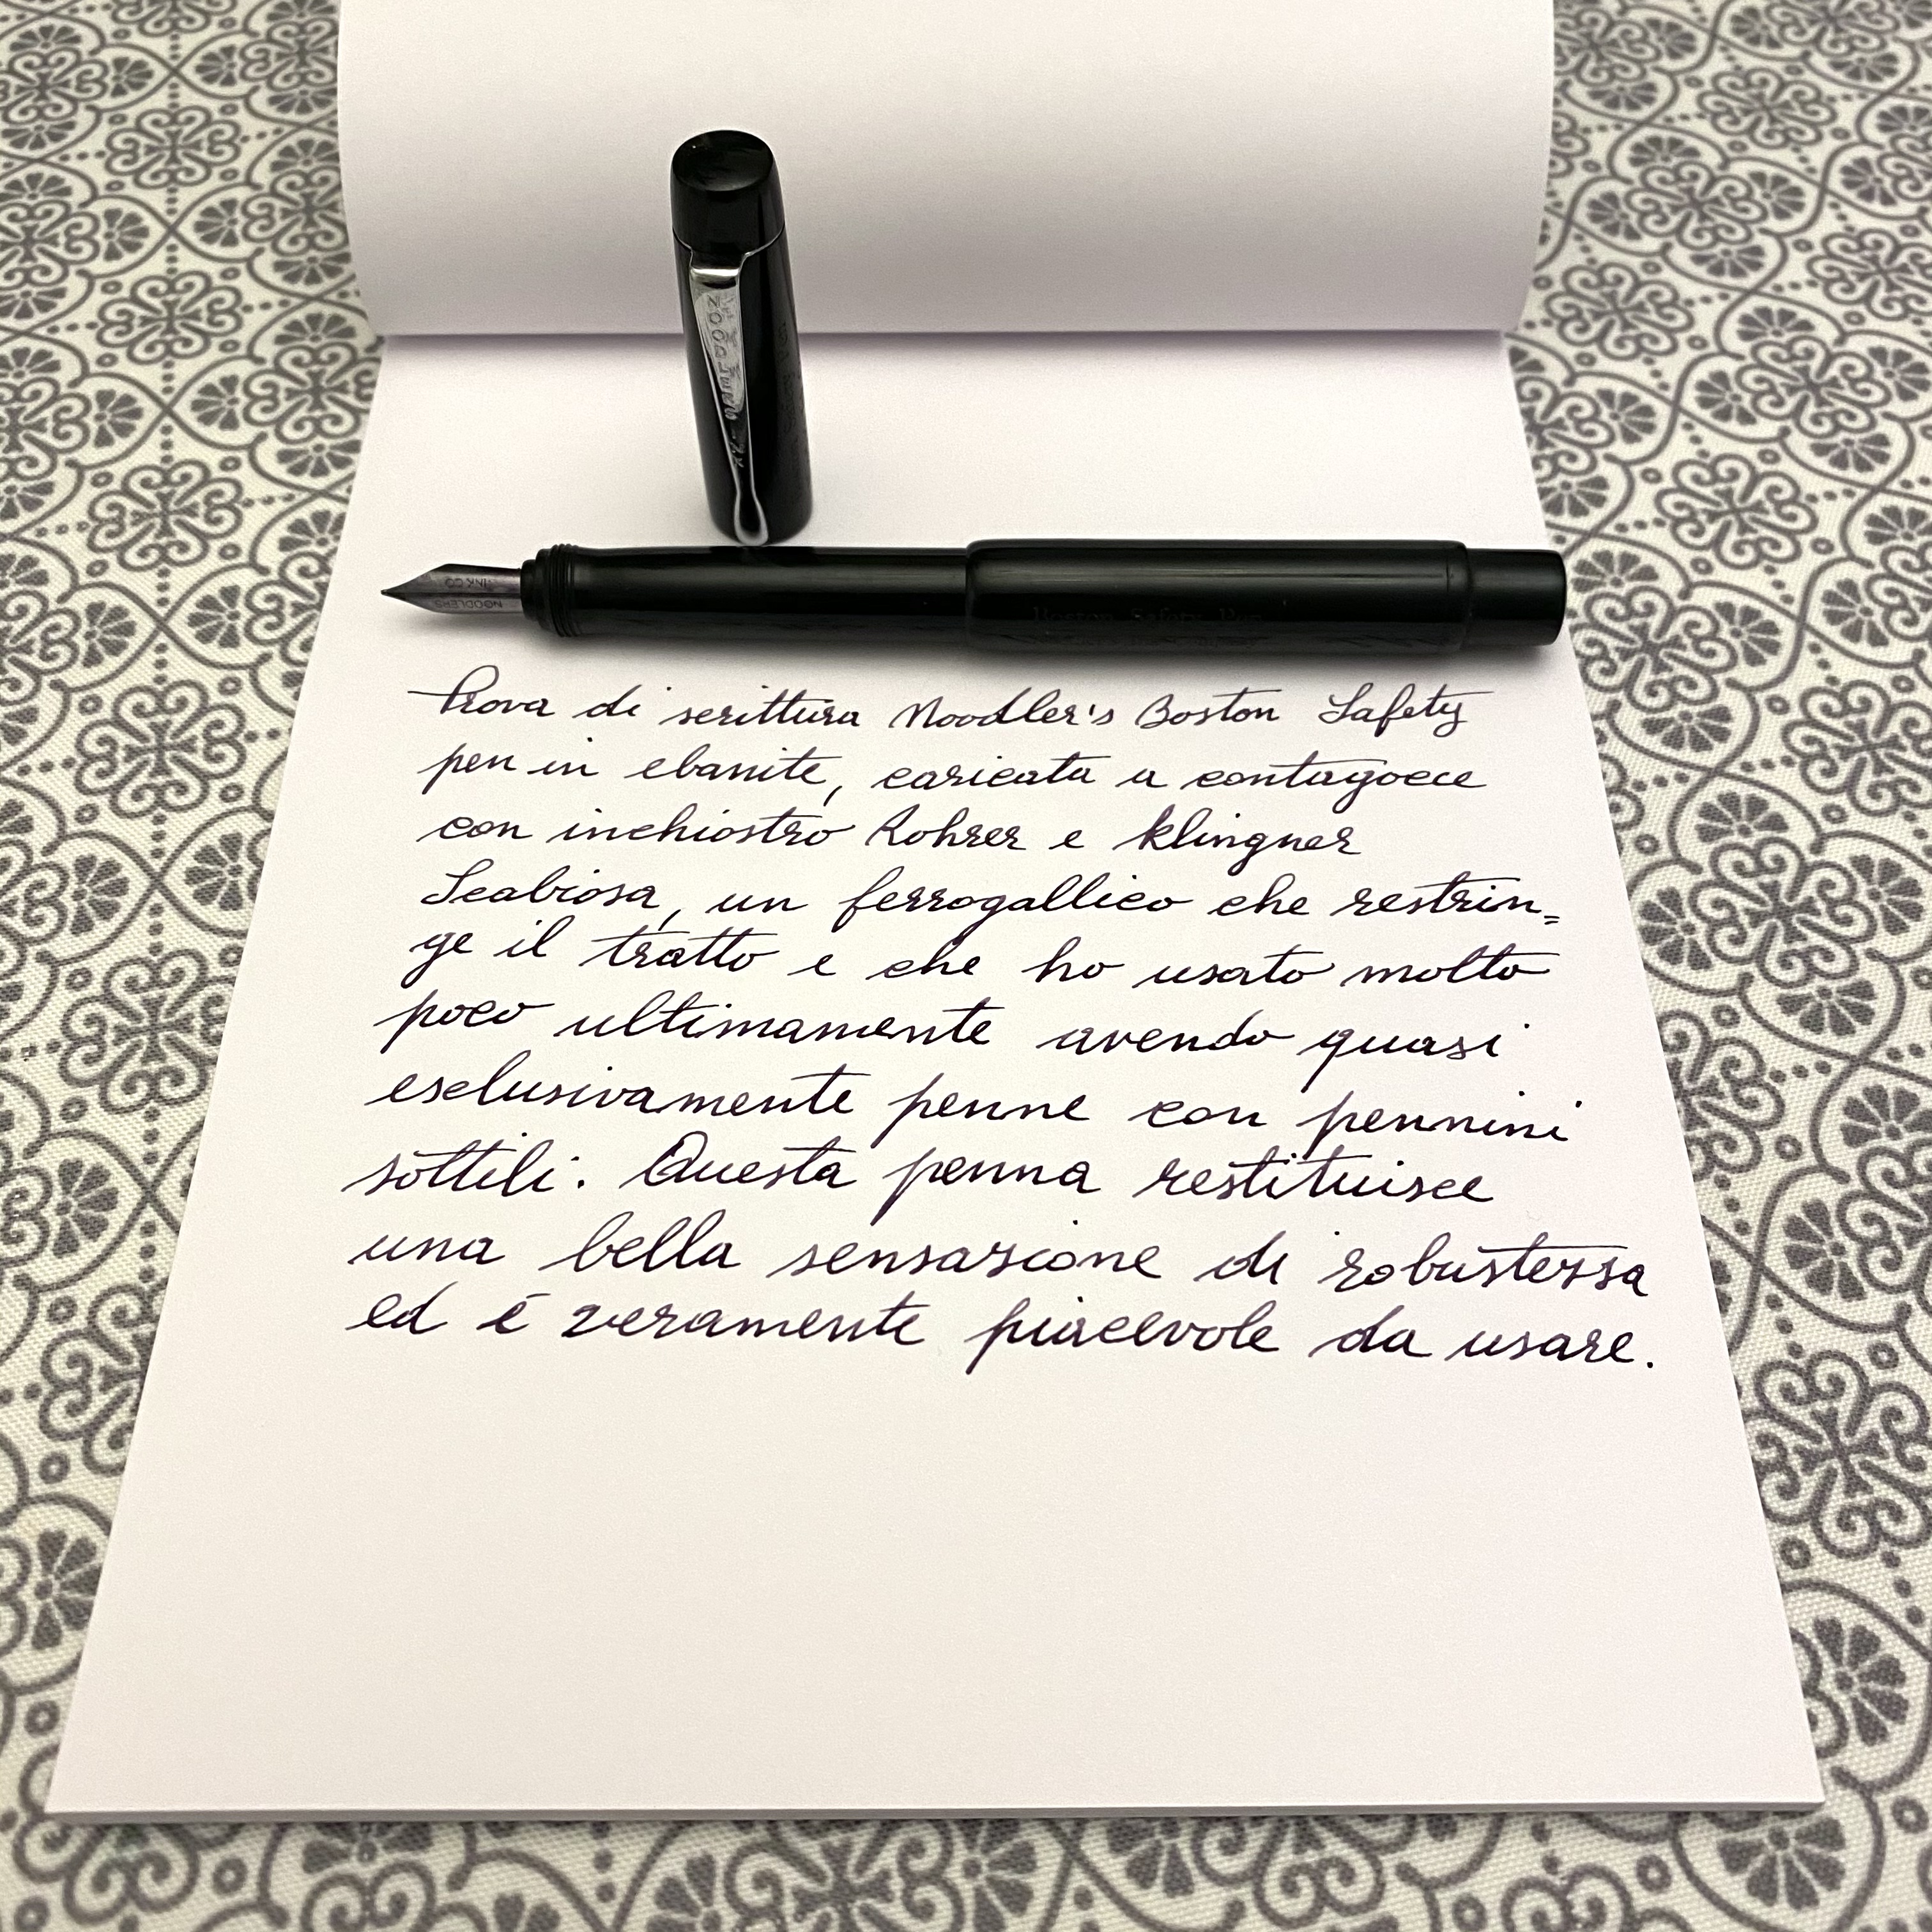 NOODLER'S
NOODLERS
INK CO
Boston Safety Pen
Prova di scrittura Noodler's Boston Safety
pen in ebanite, caricata a contagocce
con inchiostro Rohrer e Klingner
Scabiosa, un ferrogallico che restrin=
ge il tratto e che ho usato molto
poco ultimamente avendo quasi
esclusivamente penne con pennini
sottili. Questa penna restituisce
una bella sensazione di robustezza
ed è veramente piacevole da usare.